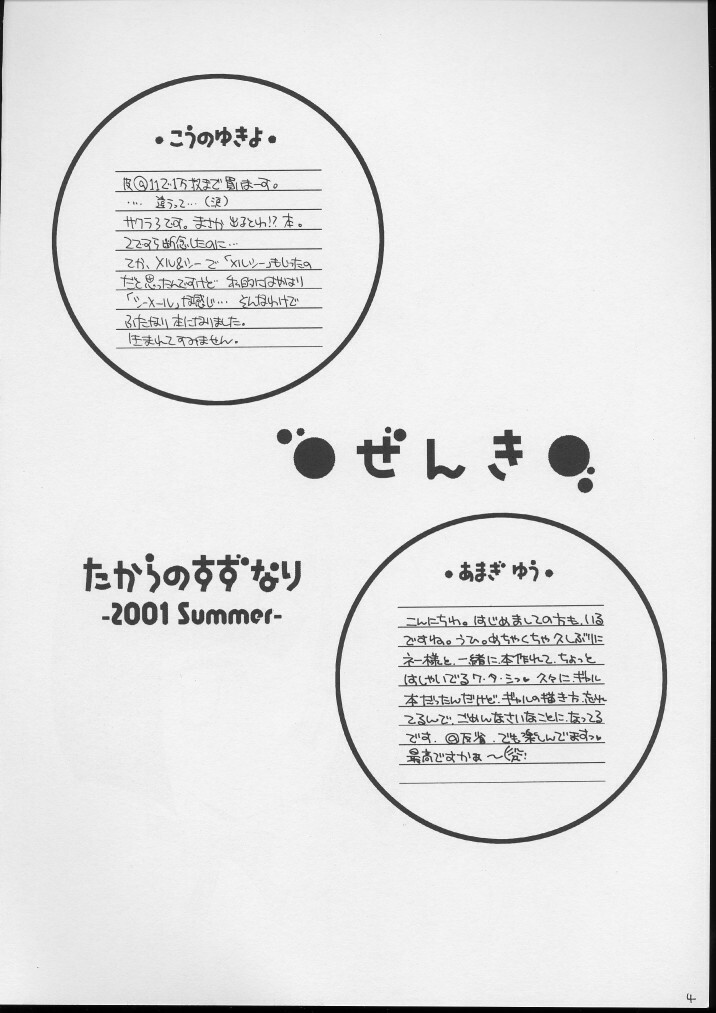 ・こうのゆきよ・
🅐11で1万枚まで買いまーす。
…. 違うって…(涙)
サクラ3です。まさか出るとわ!?本。
2ですら断念したのに…
てか、メル&シーで「メルシー」もじったの
だと思ったんですけど 私的にはやはり
「シーメール」な感じ… そんなわけで
ふたなり本になりました。
生まれてすみません。
ぜんき
たからのすずなり
-2001 Summer-
・あまぎ ゆう・
こんにちわ。はじめましての方も、いる
ですね。うひ。めちゃくちゃ久しぶりに
ネー様と、一緒に、本作れて、ちょっと
はしゃいでるワ・タ・シっ♥ 久々に ギャル
本だったんだけど、ギャルの描き方、忘れ
てるんで、ごめんなさいなことに、なってる
です. @反省. でも楽しんでますっ♥
最高ですかぁ~
4